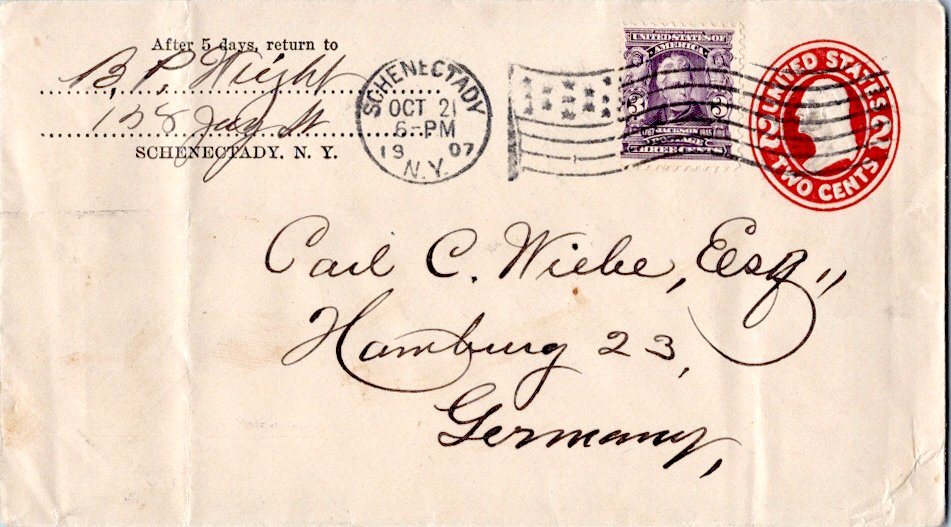 After 5 days, return to
B. P. Wright
158 Jay St
SCHENECTADY, N. Y.
SCHENECTADY
OCT 21
6-PM
19 07
N.Y.
UNITED STATES OF
AMERICA
3 3
1767 JACKSON 1845
POSTAGE
THREE CENTS
UNITED STATES
2 2
TWO CENTS
Carl C. Wiebe, Esq.,
Hamburg 23,
Germany,